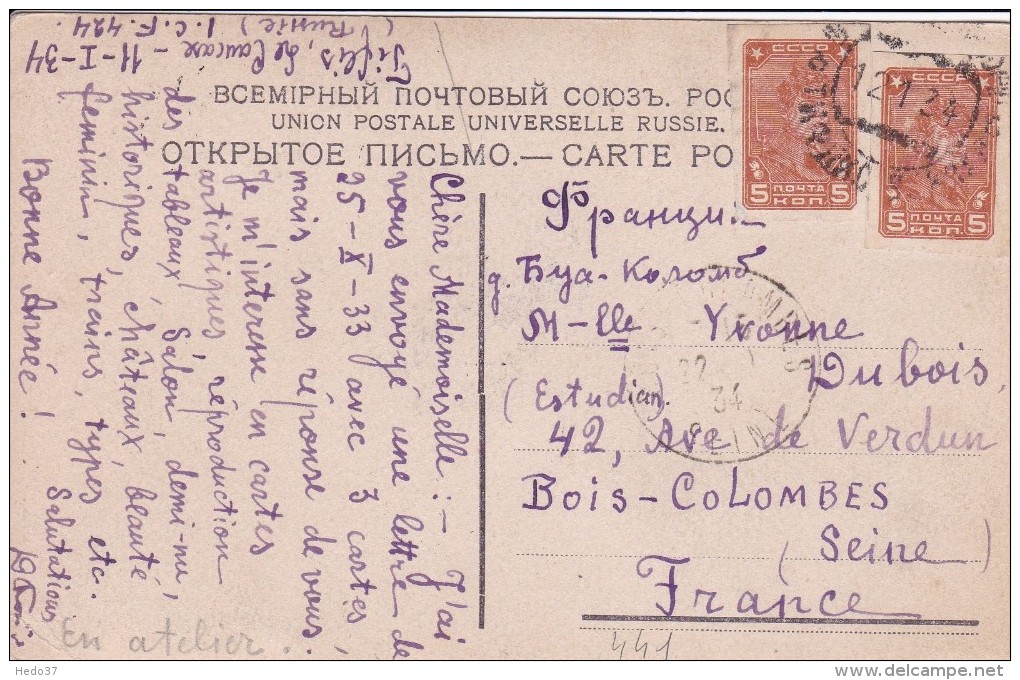 Tiflis, le Caucase - 11-I-34
(Russie) I. C. F. 424
Chère Mademoiselle: - J'ai
vous envoyé une lettre de
25-X-33 avec 3 cartes
mais sans réponse de vous.
Je m'interesse en cartes
artistiques, réproduction
des tableaux, Salon, demi-nu,
historiques, châteaux, beauté
feminin, trains, types etc.
Bonne Année! Salutations
En atelier.
ВСЕМІРНЫЙ ПОЧТОВЫЙ СОЮЗЪ. РОС
UNION POSTALE UNIVERSELLE RUSSIE.
ОТКРЫТОЕ ПИСЬМО.— CARTE PO
СССР
5 ПОЧТА 5
КОП.
СССР
5 ПОЧТА 5
КОП.
12 1 34
Франция
г. Буа-Коломб
M-lle Yvonne
Dubois,
(Estudian.)
42, Ave de Verdun
BOIS-COLOMBES
(Seine)
France
22
34
SEINE
441
Hedo37
delcampe.net